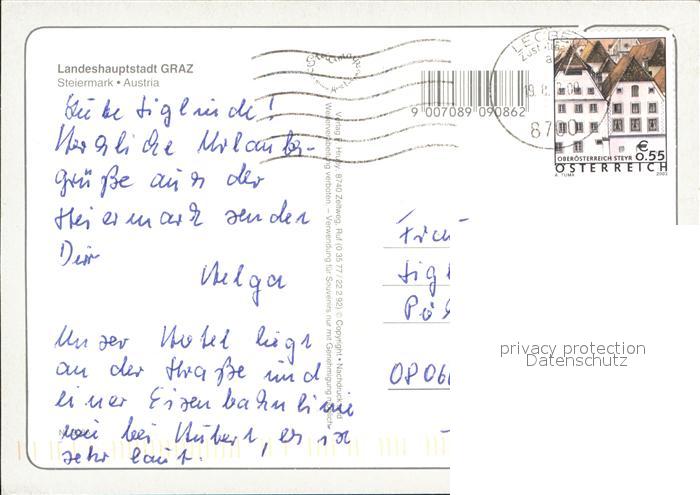 Landeshauptstadt GRAZ
Steiermark • Austria
Liebe Siglinde!
Herzliche Urlaubs-
grüße aus der
Steiermark senden
Dir
Helga
Unser Hotel liegt
an der Straße und
einer Eisenbahnlinie
wie bei Hubert, es ist
sehr laut.
Verlag • 8740 Zeltweg, Ruf (0 35 77 / 22 2 92) © Copyright • Nachdruck und
Weiterverarbeitung verboten. – Verwendung für Souvenirs nur mit Genehmigung möglich
9 007089 090862
8700
OBERÖSTERREICH STEYR
€ 0.55
ÖSTERREICH
A. TUMA 2002
Frau
Sigl
0806
privacy protection
Datenschutz